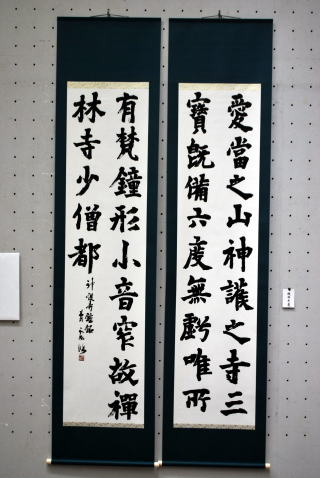 愛當之山神護之寺三
寶既備六度無虧唯所
有梵鐘形小音窄故禪
林寺少僧都
神護寺鐘銘